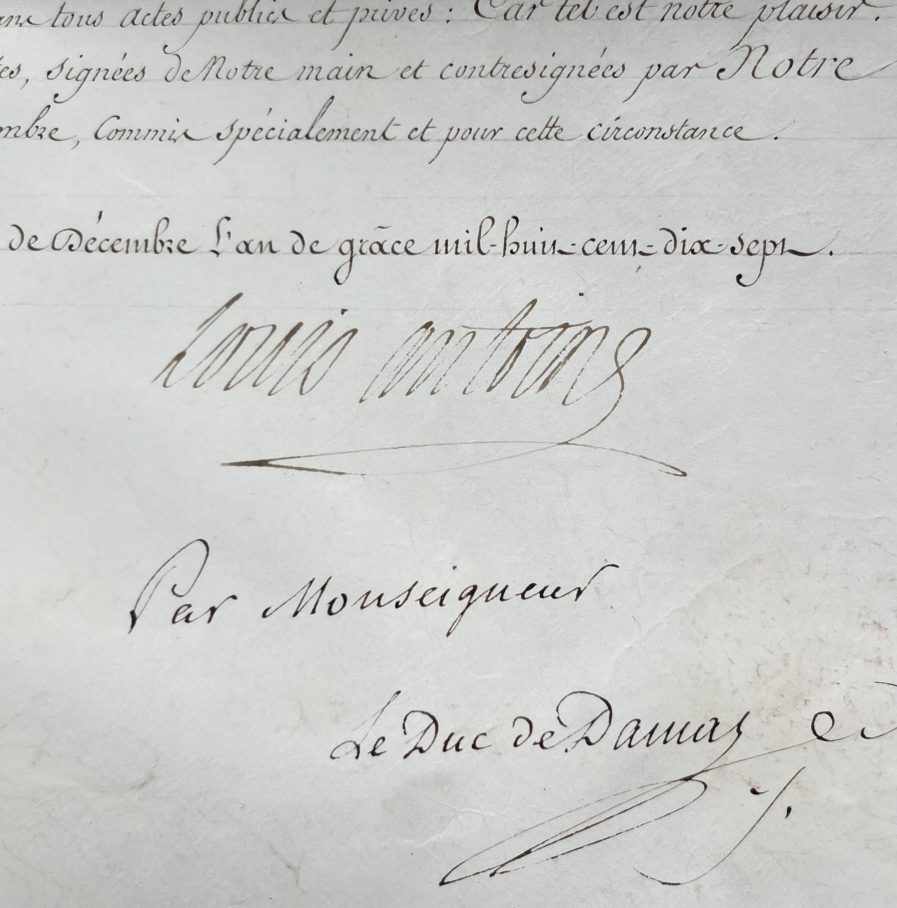 tous actes publics et privés : Car tel est notre plaisir.
signées de Notre main et contresignées par Notre
Commis spécialement et pour cette circonstance.
de Décembre L'an de grâce mil-huit-cent-dix-sept.
Louis antoine
Par Monseigneur
Le Duc de Damas